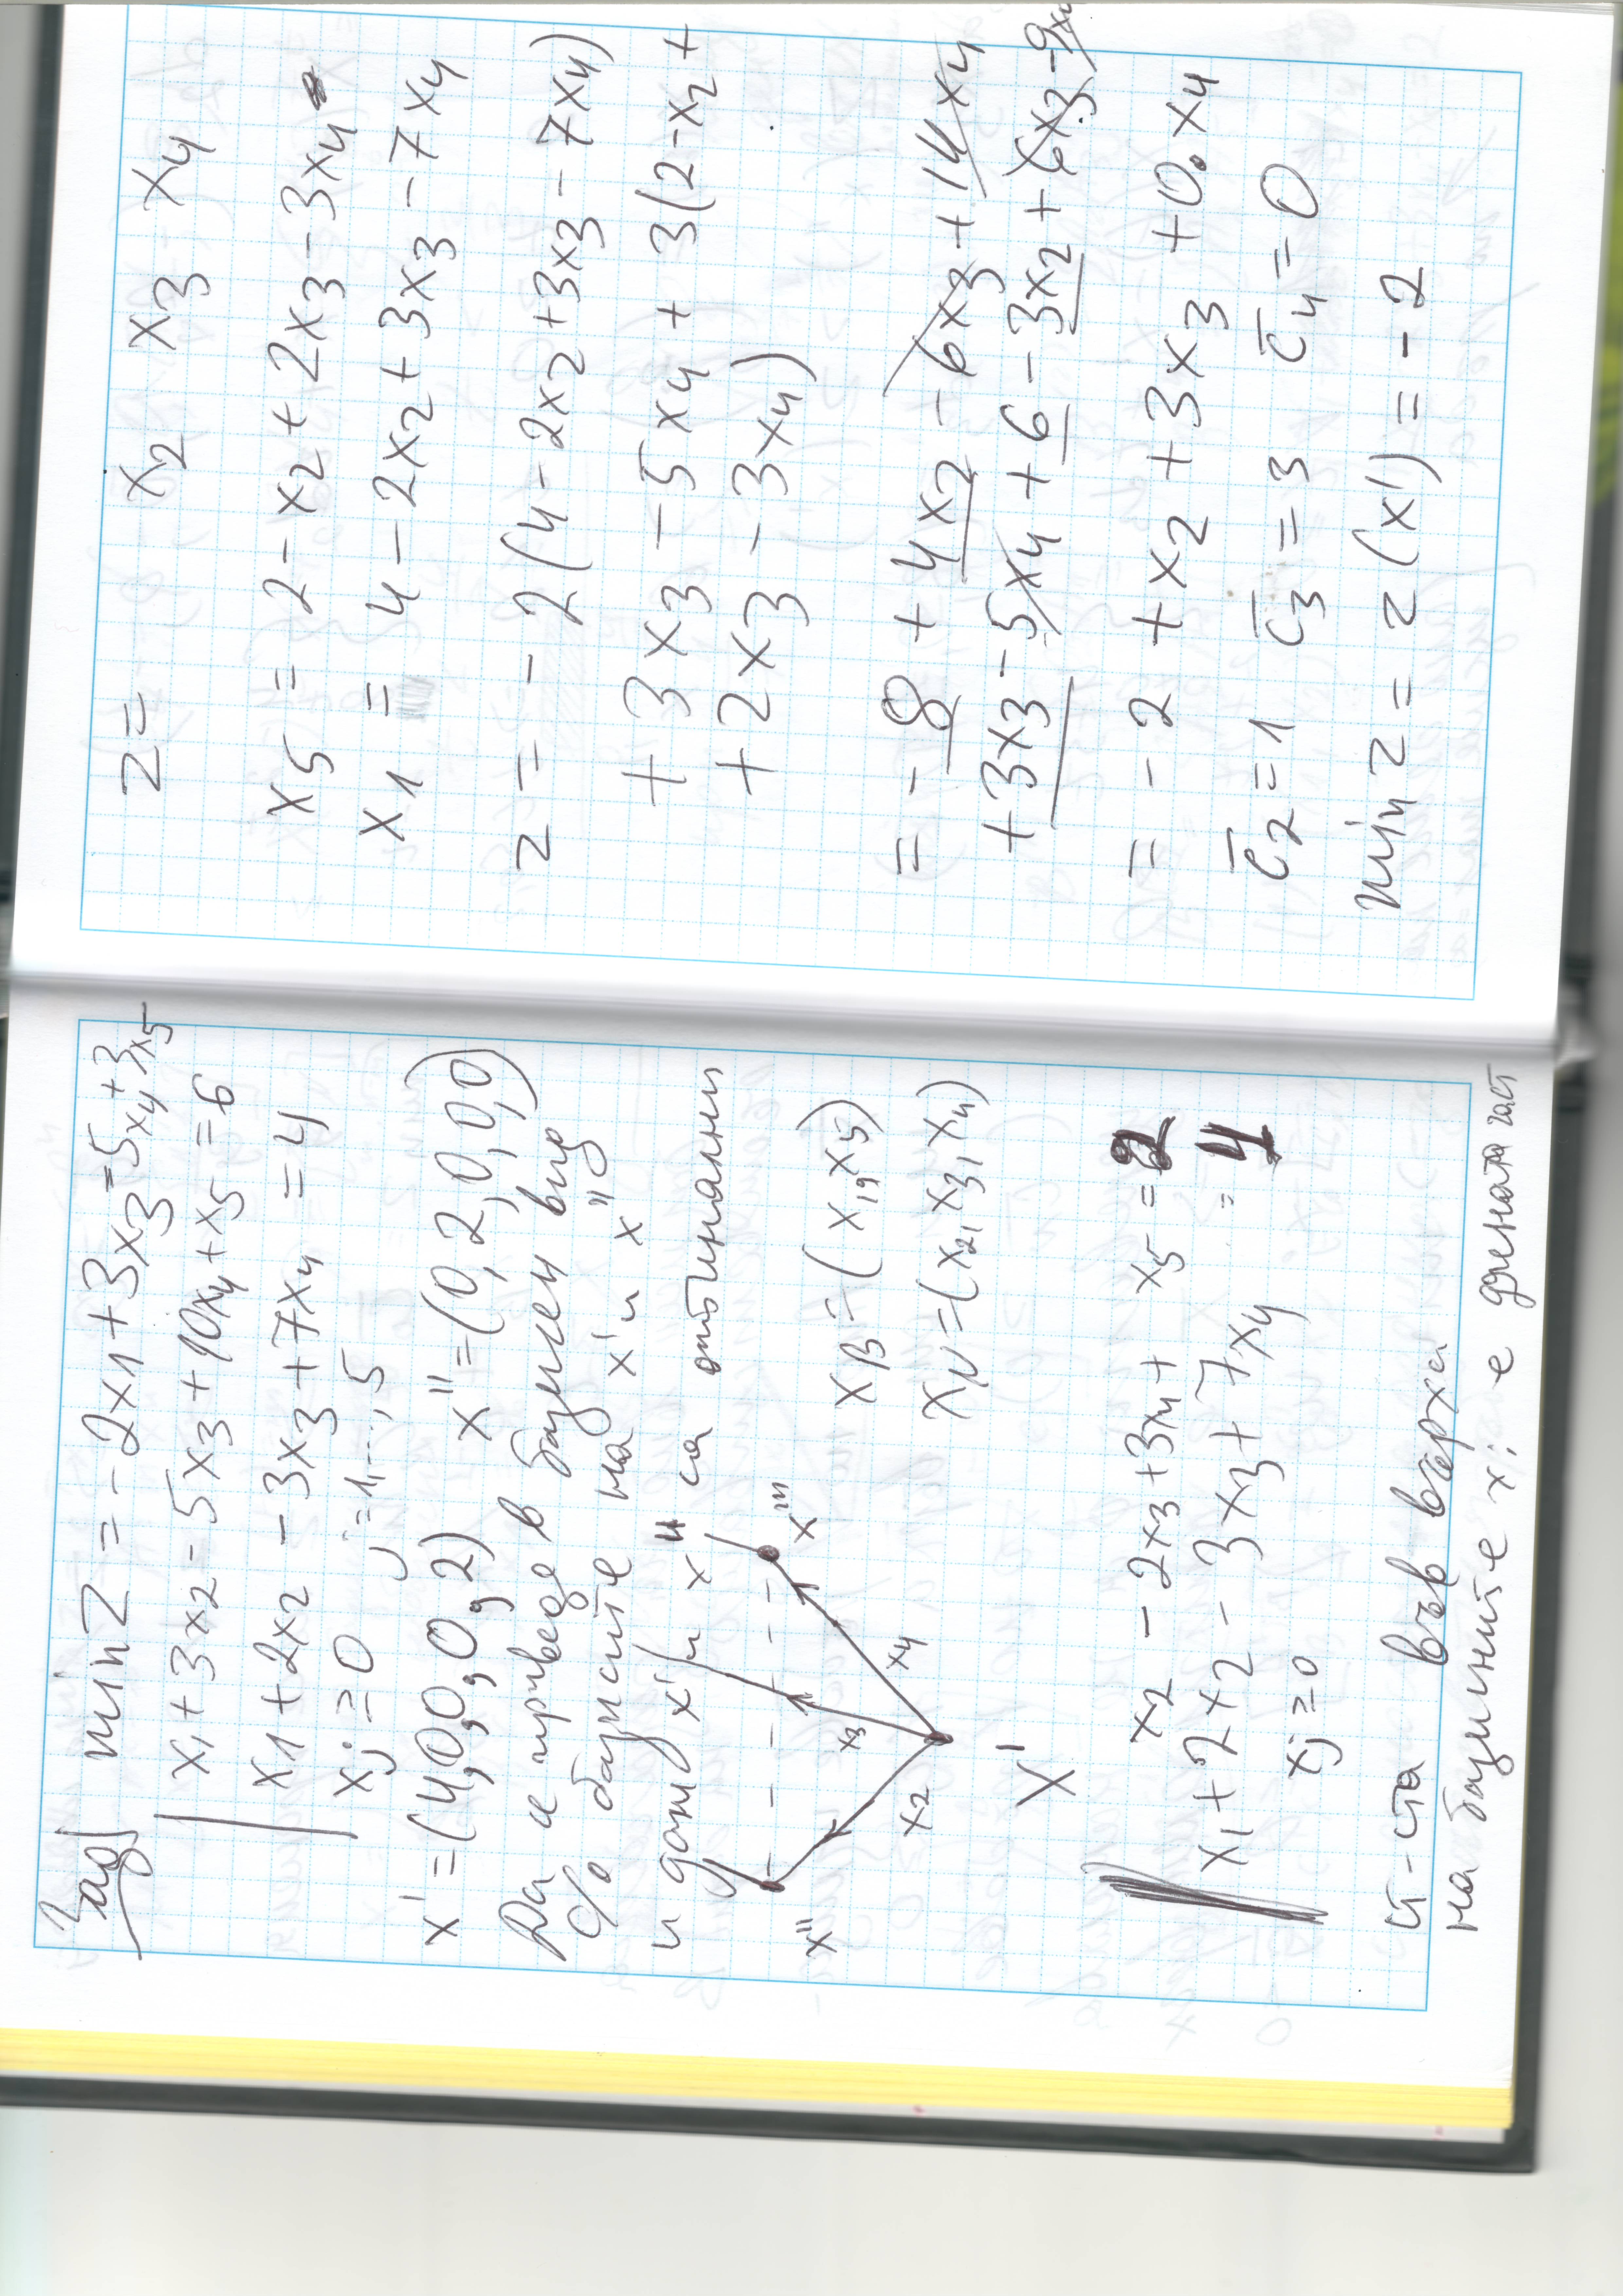 Зад min Z = -2x1 + 3x3 - 5x4 + 3x5
x1 + 3x2 - 5x3 + 10x4 + x5 = 6
x1 + 2x2 - 3x3 + 7x4 = 4
xj ≥ 0 j = 1,..., 5
x' = (4,0,0,0,2) x'' = (0,2,0,0,0)
Да се приведе в базисен вид
% базисите на x' и x''
и дали x' и x'' са оптимални
x'' x2 x3 x4 x'''
X'
xB = (x1, x5)
xN = (x2, x3, x4)
x2 - 2x3 + 3x4 + x5 = 2
x1 + 2x2 - 3x3 + 7x4 = 4
xj ≥ 0
във върха
на базисните xi е дясната част
z = x2 x3 x4
x5 = 2 - x2 + 2x3 - 3x4
x1 = 4 - 2x2 + 3x3 - 7x4
z = -2(4 - 2x2 + 3x3 - 7x4)
+ 3x3 - 5x4 + 3(2 - x2 +
+ 2x3 - 3x4)
= -8 + 4x2 - 6x3 + 14x4
+ 3x3 - 5x4 + 6 - 3x2 + 6x3 - 9x4
= -2 + x2 + 3x3 + 0.x4
c̄2 = 1 c̄3 = 3 c̄4 = 0
min z = z(x') = -2